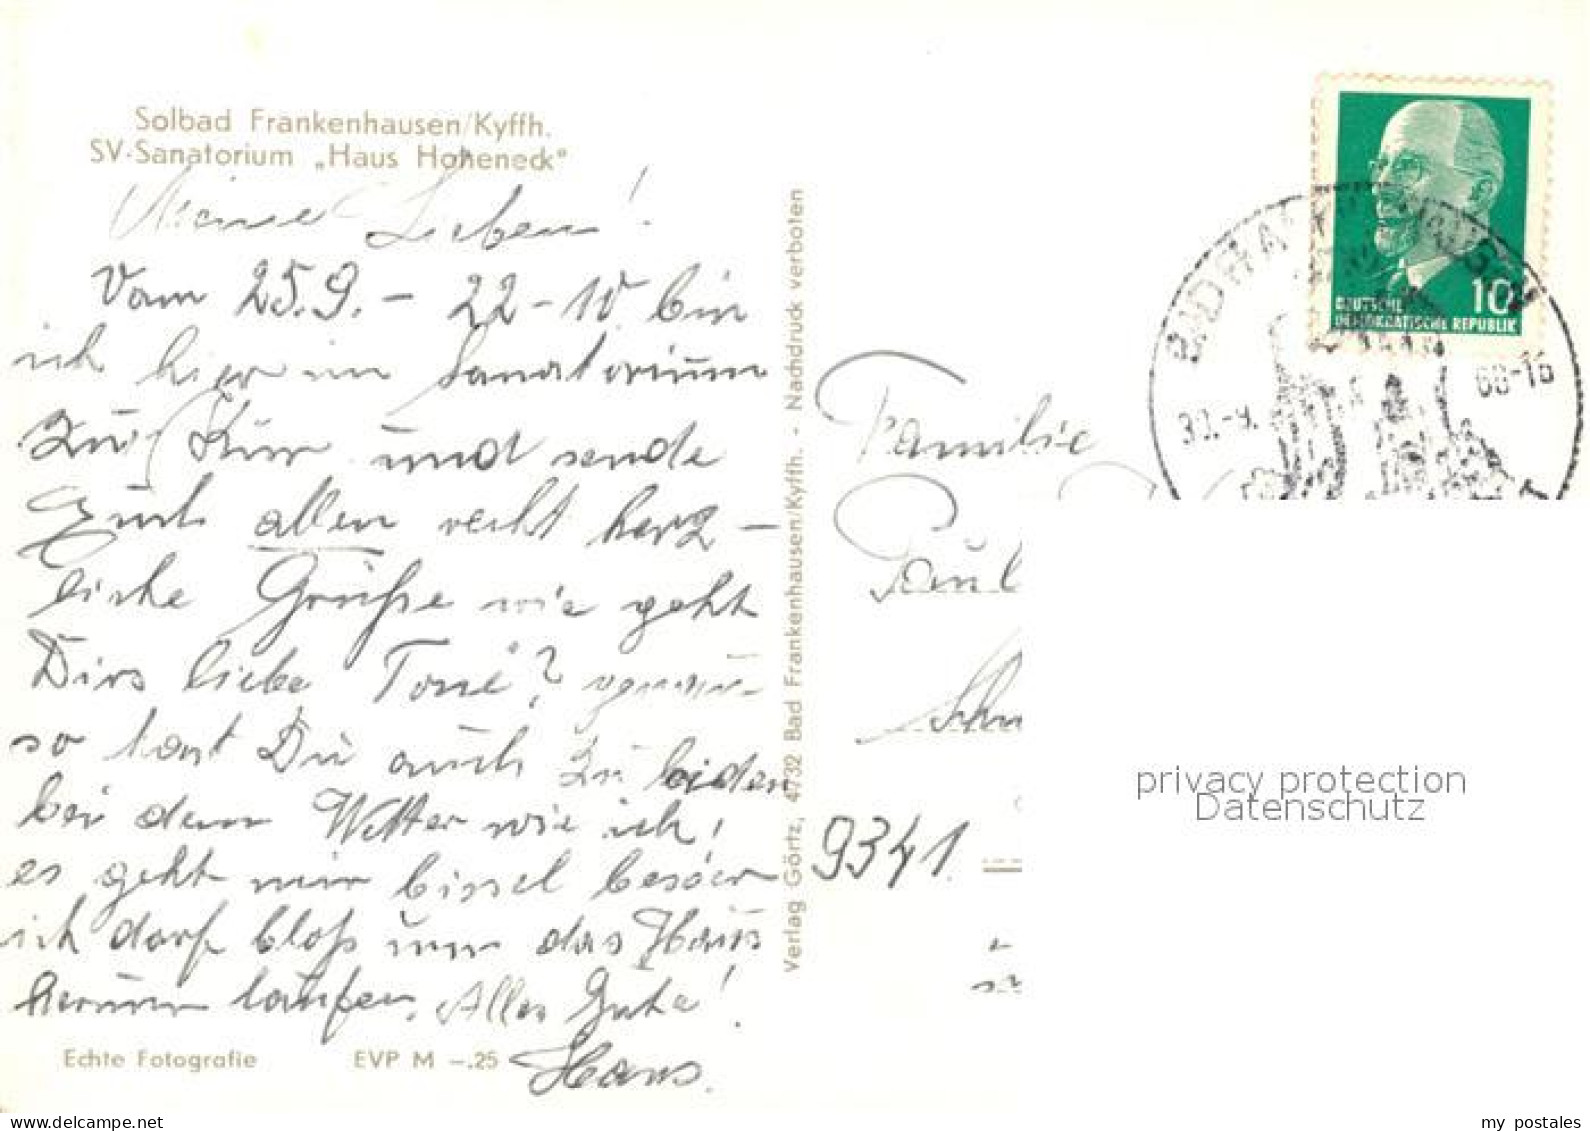 Solbad Frankenhausen/Kyffh.
SV-Sanatorium „Haus Hoheneck"
Meine Lieben!
Vom 25.9. - 22-10 bin
ich hier im Sanatorium
zur Kur und sende
Euch allen recht herz-
liche Grüße wie geht
Dirs liebe Toni?
so hast Du auch zu leiden
bei dem Wetter wie ich,
es geht mir bissel besser
ich darf bloß um das Haus
herum laufen. Alles Gute!
Hans.
Echte Fotografie EVP M -.25
Verlag Görtz, 4732 Bad Frankenhausen/Kyffh. - Nachdruck verboten
10
DEUTSCHE
DEMOKRATISCHE REPUBLIK
BAD FRANKENHAUSEN
30.-9. 68-16
Familie
Paul
Schu
9341.
privacy protection
Datenschutz
delcampe.net
my_postales